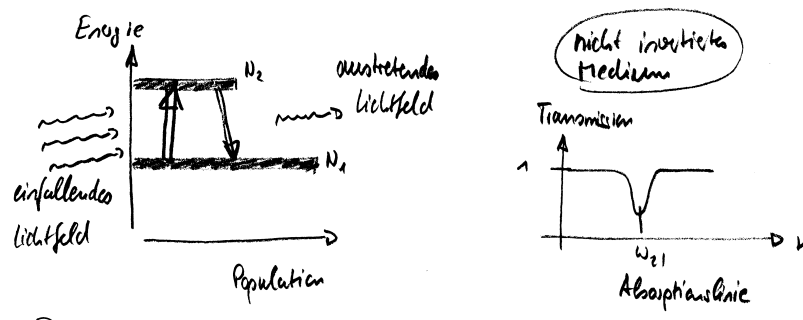 Energie
N2
austretendes
Lichtfeld
N1
einfallendes
Lichtfeld
Population
nicht invertiertes
Medium
Transmission
1
ω21
Absorptionslinie